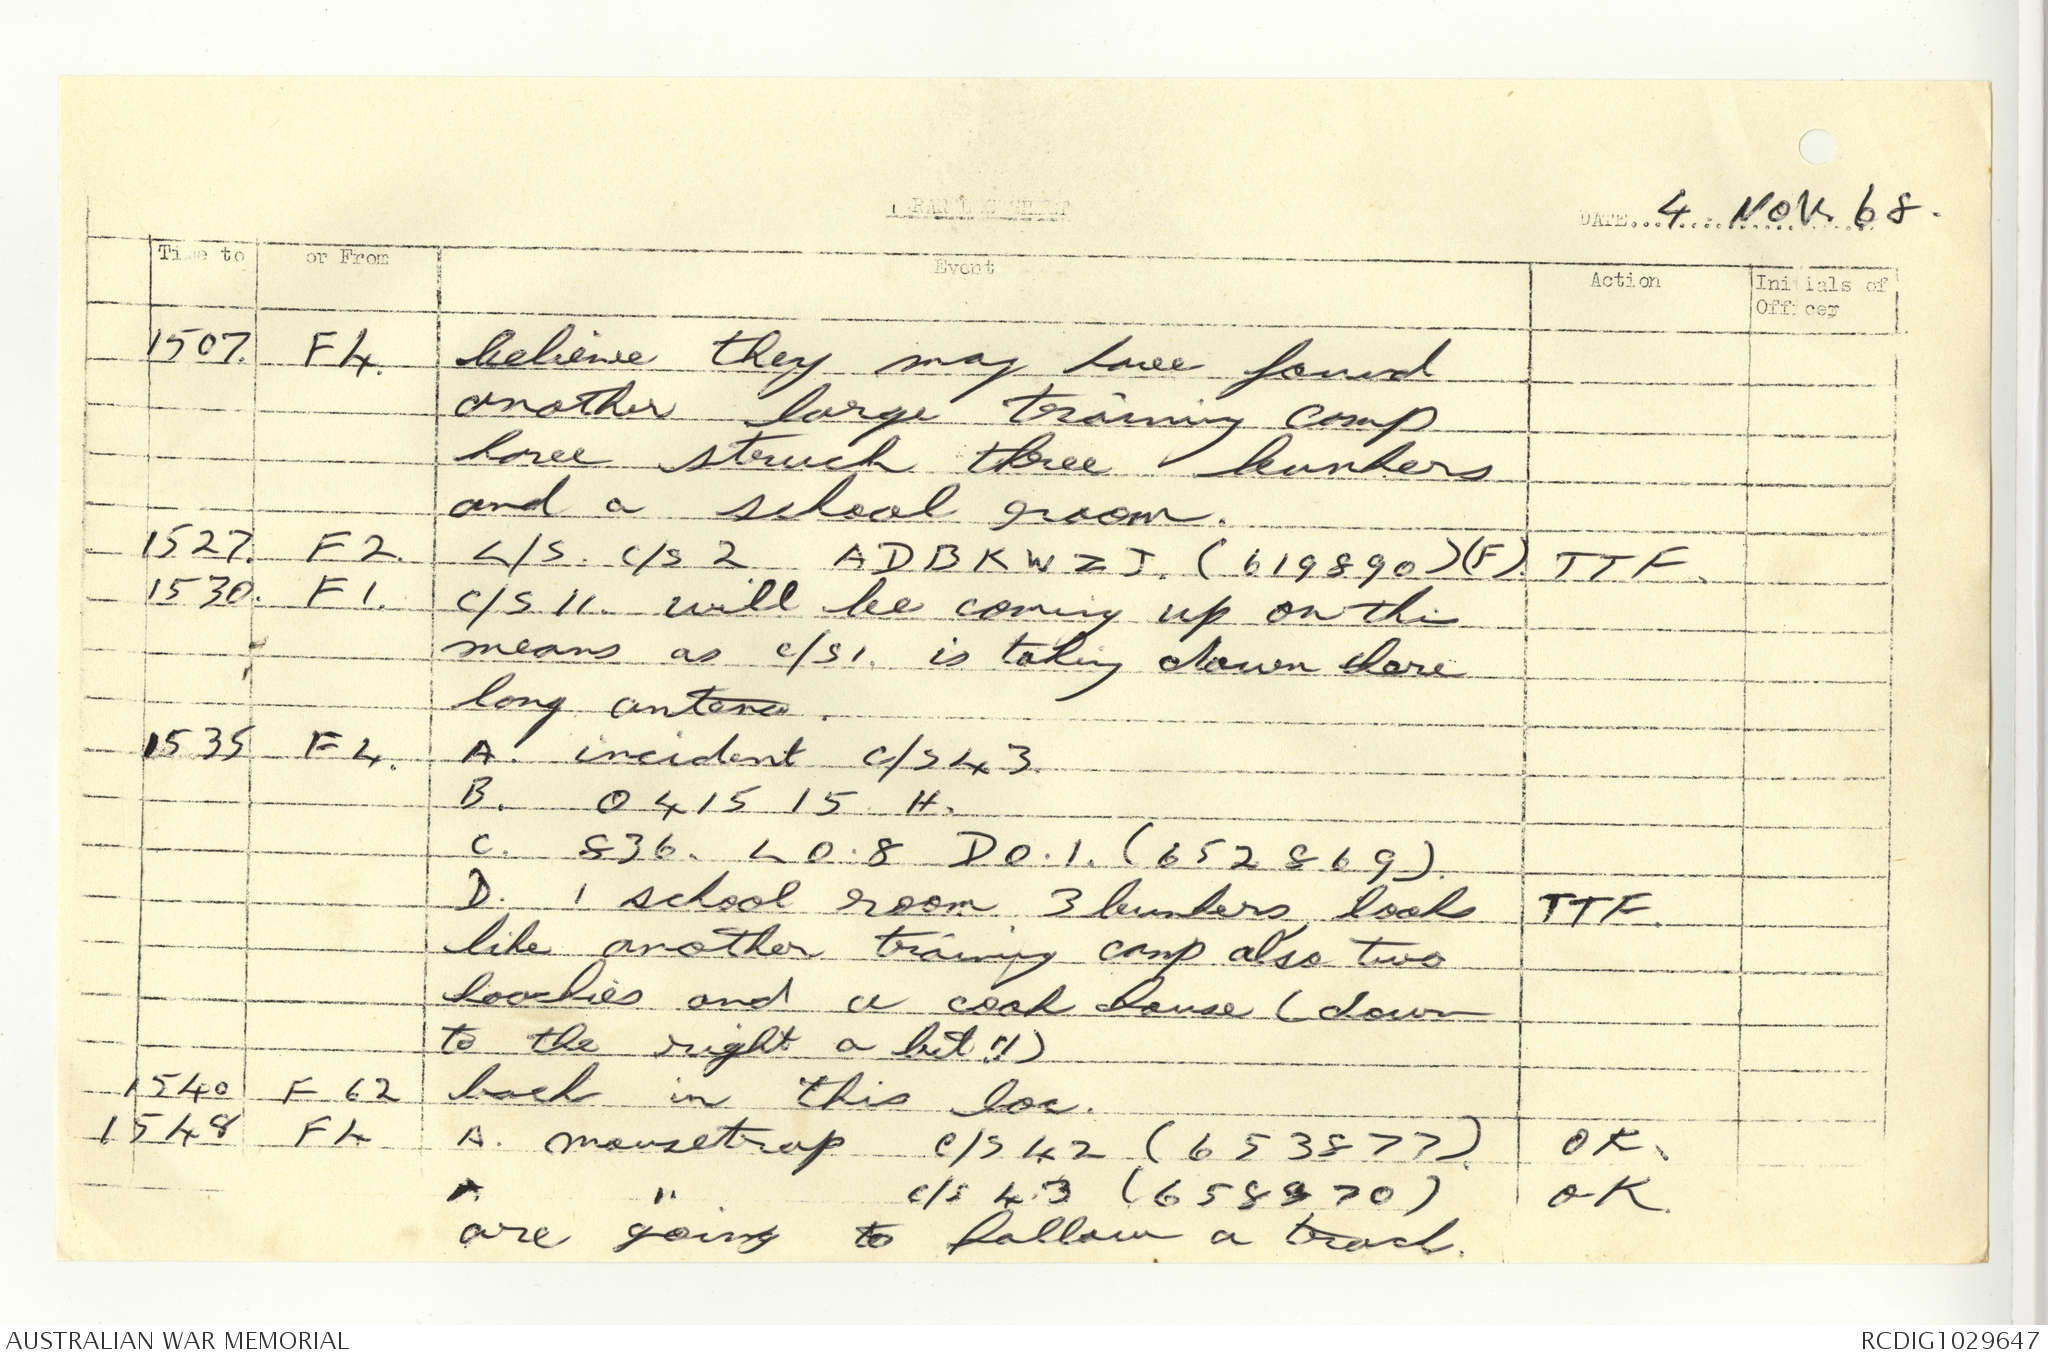 DATE 4 NOV. 68.
Time to or From Event Action Initials of
Officer
1507. F4. believe they may have found
another large training camp
have struck three bunkers
and a school room.
1527. F2. L/S. C/S 2 ADBKWZJ. (619890)(F). TTF.
1530. F1. C/S 11. will be coming up on this
means as C/S1. is taking down there
long antena.
1535 F4. A. incident C/S43.
B. 041515 H.
C. 836. L0.8 D0.1. (652869).
D. 1 school room 3 bunkers, looks TTF.
like another training camp also two
hoochies and a cook house (down
to the right a bit!!)
1540 F 62 back in this loc.
1548 F4 A. mousetrap C/S 42 (653877). OK.
A. " C/S 43 (658870) OK.
are going to follow a track.
AUSTRALIAN WAR MEMORIAL RCDIG1029647